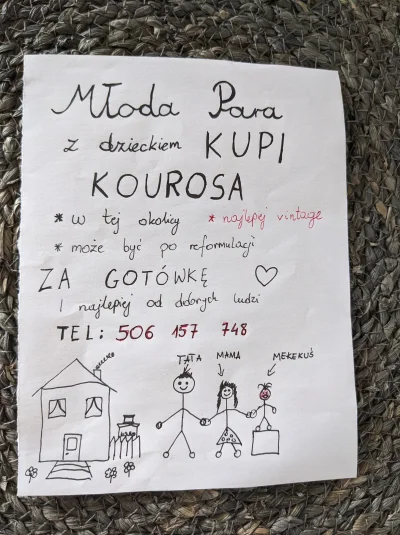 Młoda Para
z dzieckiem KUPI
KOUROSA
* w tej okolicy * najlepiej vintage
* może być po reformulacji
ZA GOTÓWKĘ
I najlepiej od dobrych ludzi
TEL: 506 157 748
TATA MAMA MEKEKUŚ